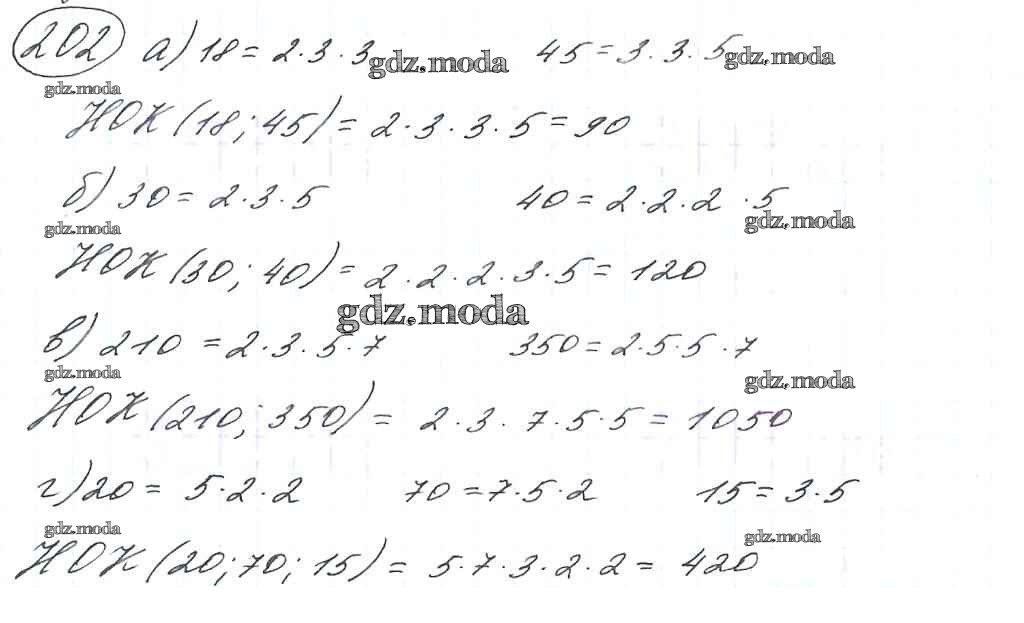 202 а) 18 = 2·3·3 gdz.moda 45 = 3·3·5 gdz.moda
gdz.moda
НОК (18; 45) = 2·3·3·5 = 90
б) 30 = 2·3·5 40 = 2·2·2·5
gdz.moda gdz.moda
НОК (30; 40) = 2·2·2·3·5 = 120
gdz.moda
в) 210 = 2·3·5·7 350 = 2·5·5·7
gdz.moda gdz.moda
НОК (210; 350) = 2·3·7·5·5 = 1050
г) 20 = 5·2·2 70 = 7·5·2 15 = 3·5
gdz.moda gdz.moda
НОК (20; 70; 15) = 5·7·3·2·2 = 420